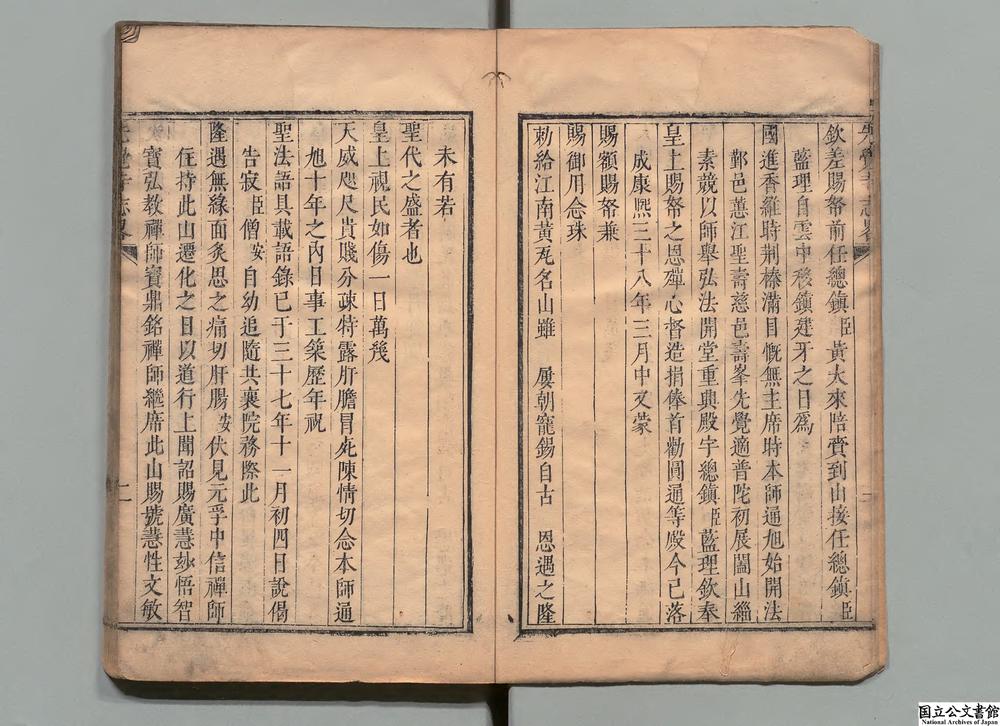 欽差賜帑前任總鎮臣黃大來陪賫到山接任總鎮臣
藍理自雲中移鎮建牙之日爲
國進香維時荆榛滿目慨無主席時本師通旭始開法
鄞邑蕙江聖壽慈邑壽峯先覺適普陀初展闔山緇
素競以師舉弘法開堂重興殿宇總鎮臣藍理欽奉
皇上賜帑之恩殫心督造捐俸首勸圓通等殿今已落
成康熙三十八年三月中又蒙
賜額賜帑兼
賜御用念珠
勑給江南黃瓦名山雖 屢朝寵錫自古 恩遇之隆
未有若
聖代之盛者也
皇上視民如傷一日萬幾
天威咫尺貴賤分疎特露肝膽冒死陳情切念本師通
旭十年之內日事工築歷年祝
聖法語具載語錄已于三十七年十一月初四日說偈
告寂臣僧安自幼追隨共襄院務際此
隆遇無緣面炙思之痛切肝腸安伏見元孚中信禪師
住持此山遷化之日以道行上聞詔賜廣慧玅悟智
寶弘教禪師寶鼎銘禪師繼席此山賜號慧性文敏
二
国立公文書館
National Archives of Japan